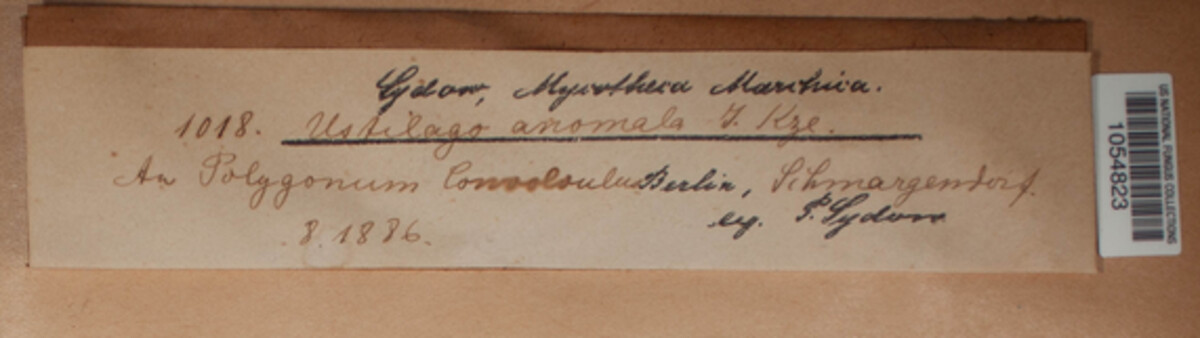 Sydow, Mycotheca Marchica.
1018. Ustilago anomala J. Kze.
An Polygonum Convolvulus Berlin, Schmargendorf.
leg. P. Sydow
8. 1886.
US NATIONAL FUNGUS COLLECTIONS
1054823